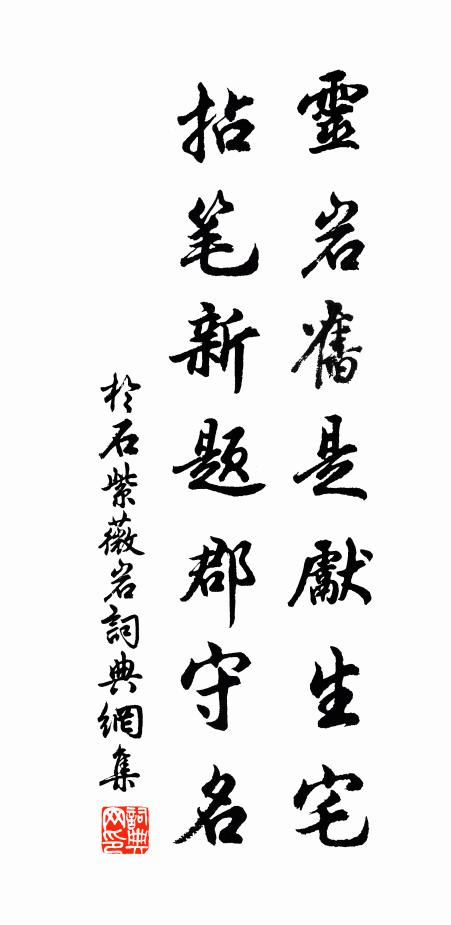 靈岩舊是獻生宅
拈笔新題郡守名
於石紫薇岩詞典網集
詞典网印